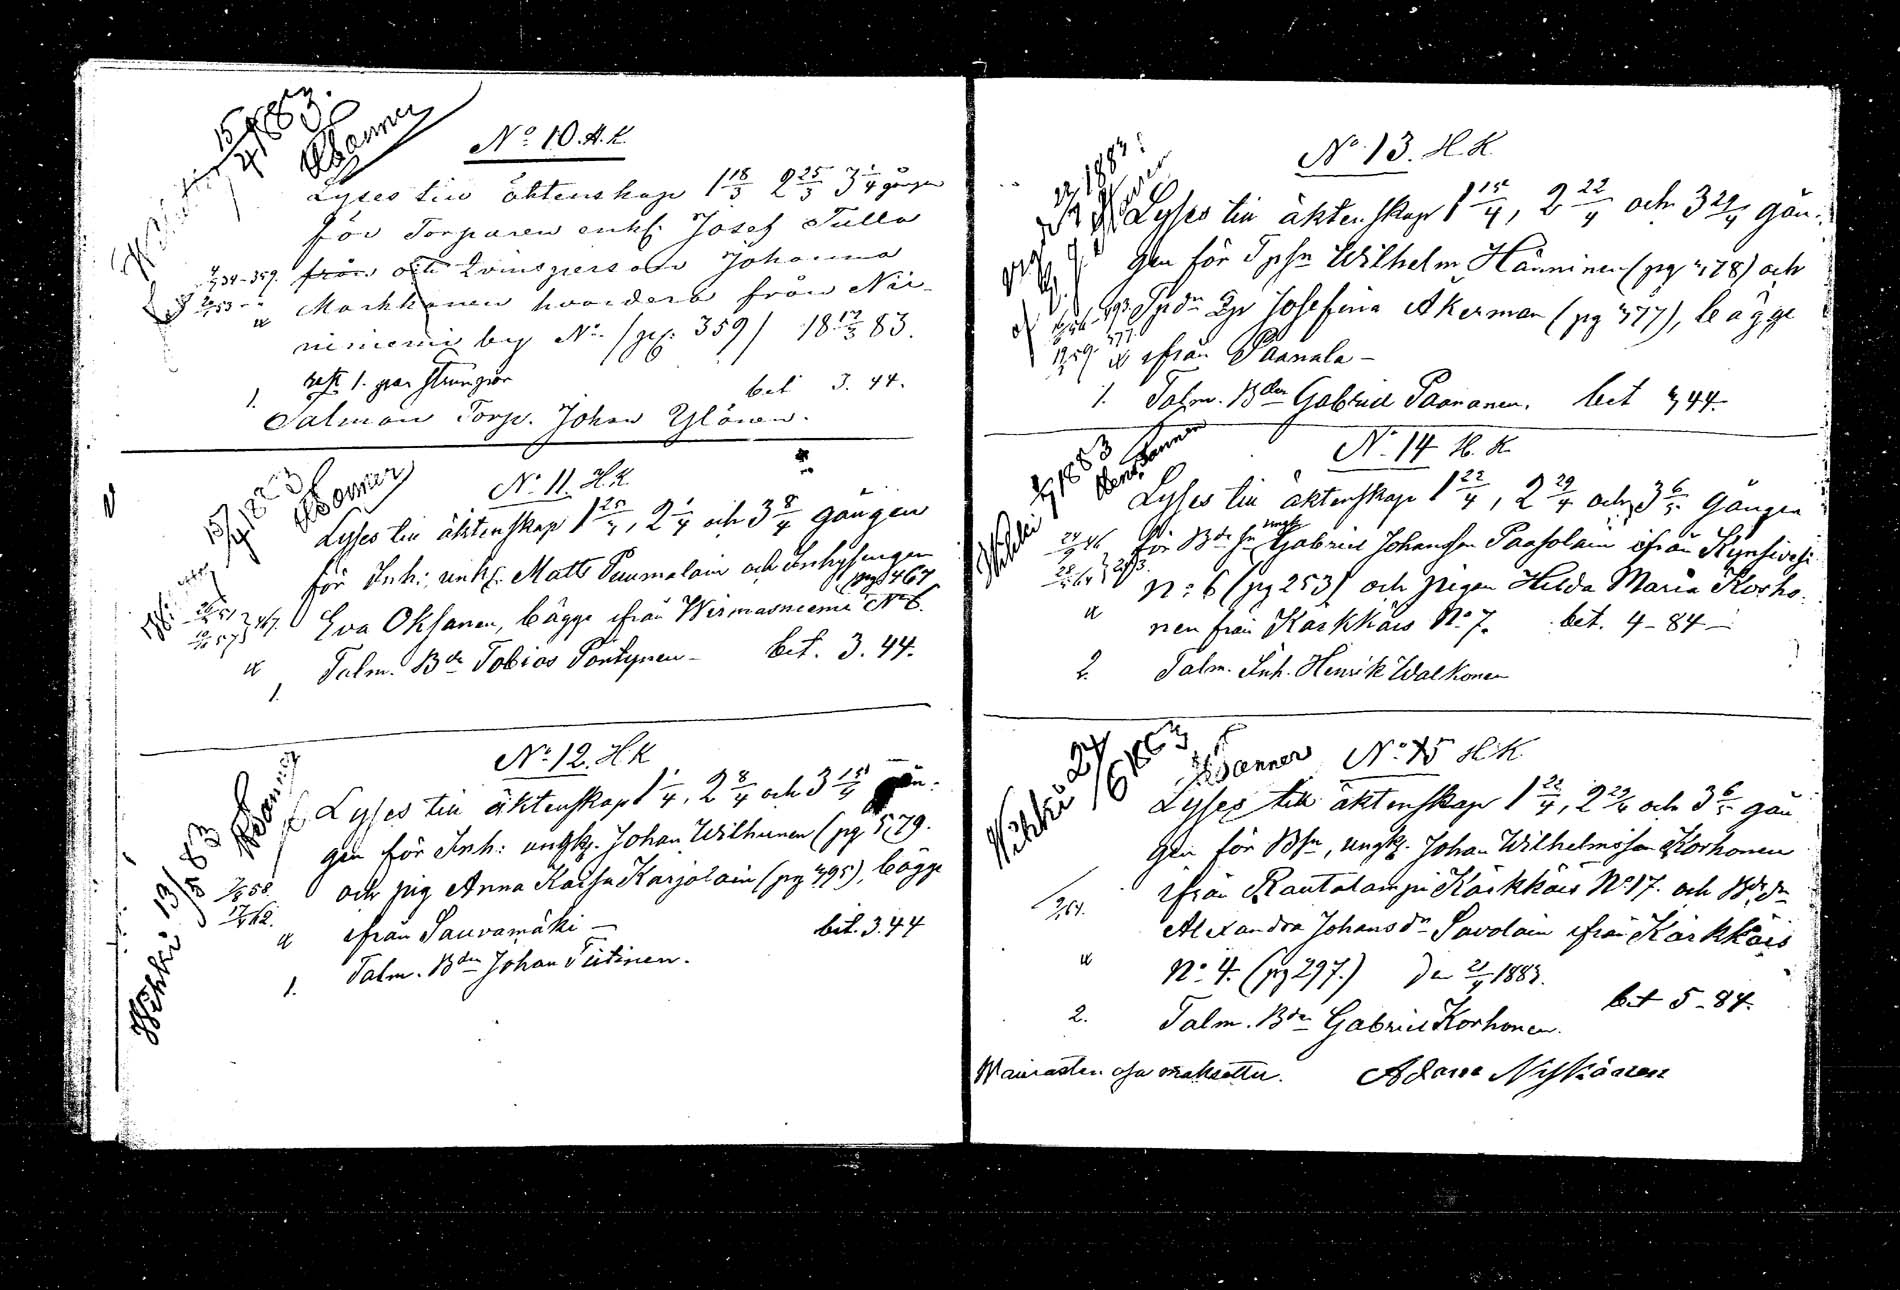 15/4 1883.
HSanner
No 10. H.K.
Lyses till äktenskap 1 18/3 2 25/3 3 1/4 gången
för Torparen enkl. Josef Tulla
från och Qvinsperson Johanna
Markkanen hvardera från Nii-
niniemi by No (pg. 359) 18 17/3 83.
1. bet 3. 44.
Talman Torp. Johan Ylönen.
15/4 1883
HSanner
No 11. H.K.
Lyses till äktenskap 1 25/3, 2 1/4 och 3 8/4 gången
för Inh: enkl. Matts Puumalain och Inhysingen
pag 467
Eva Oksanen, bägge ifrån Wirmasniemi No 6.
1. Talm. Bde Tobias Pöntynen - bet. 3. 44.
Wihki 13/5 83
HSanner
No 12. H.K
Lyses till äktenskap 1 1/4, 2 8/4 och 3 15/4 gån-
gen för Inh: ungk. Johan Wilhunen (pg 579.
och pig Anna Kaisa Karjolain (pg 495), bägge
ifrån Sauvamäki -
bet. 3.44
1. Talm. Bden Johan Tiitinen.
No 13. H.K.
Lyses till äktenskap 1 15/4, 2 22/4 och 3 29/4 gån-
gen för Tpsn Wilhelm Hänninen (pg 478) och
Tpdn Qp Josefina Åkerman (pg 477), bägge
ifrån Paanala -
1. Talm. Bden Gabriel Paananen. bet 3,44.
No 14 H.K.
Lyses till äktenskap 1 22/4, 2 29/4 och 3 6/5 gången
för Bdesn ungk Gabriel Johansson Paasolain ifrån Kynsivesi
No 6 (pg 253) och pigan Hilda Maria Korho-
nen från Kärkkäis No 7. bet. 4-84 -
2. Talm. Inh. Henrik Walkonen
Wihki 24/6 1883
HSanner
No 15 H.K.
Lyses till äktenskap 1 22/4, 2 29/4 och 3 6/5 gån
gen för Bsn, ungk. Johan Wilhelmsson Korhonen
ifrån Rautalampi Kärkkäis No 17. och Bdedn
Alexandra Johansdn Savolain ifrån Kärkkäis
No 4. (pg 297.) den 21/4 1883.
bet 5-84.
2. Talm. Bden Gabriel Korhonen.
Waivasten osa maksettu. Adam Nyskänen